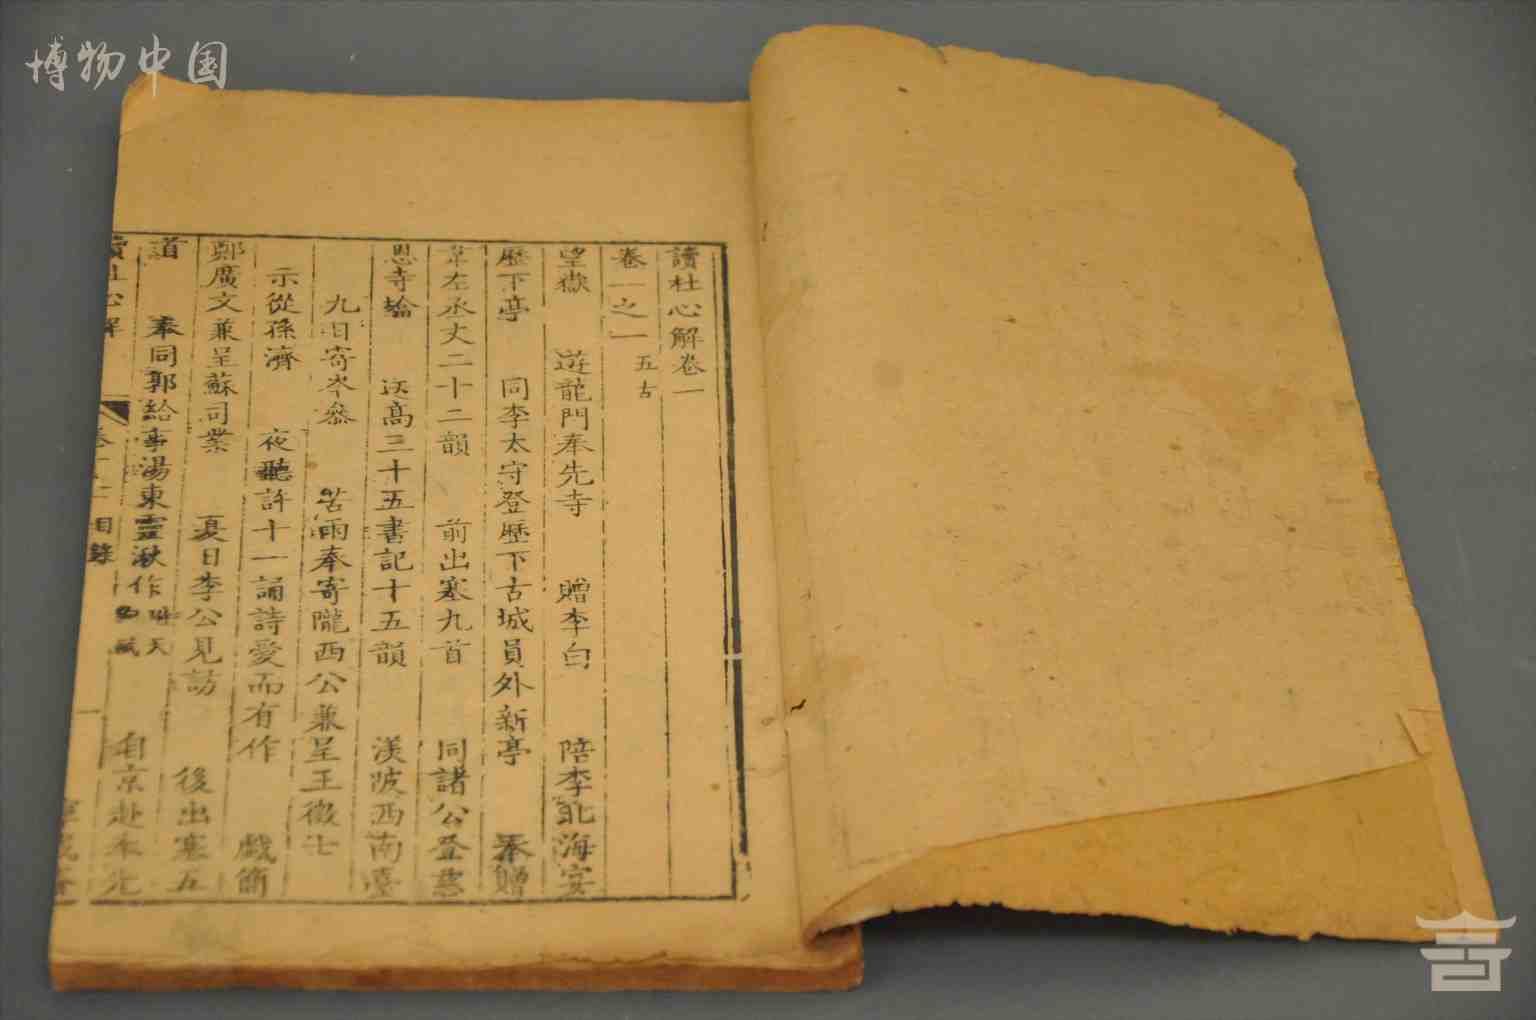 博物中国
讀杜心解卷一
卷一之一 五古
望嶽 遊龍門奉先寺 贈李白 陪李北海宴
歷下亭 同李太守登歷下古城員外新亭 奉贈
韋左丞丈二十二韻 前出塞九首 同諸公登慈
恩寺塔 送高三十五書記十五韻 渼陂西南臺
九日寄岑參 苦雨奉寄隴西公兼呈王徵士
示從孫濟 夜聽許十一誦詩愛而有作 戲簡
鄭廣文兼呈蘇司業 夏日李公見訪 後出塞五
道 奉同郭給事湯東靈湫作 自京赴奉先
讀杜心解 卷一之一目錄 一